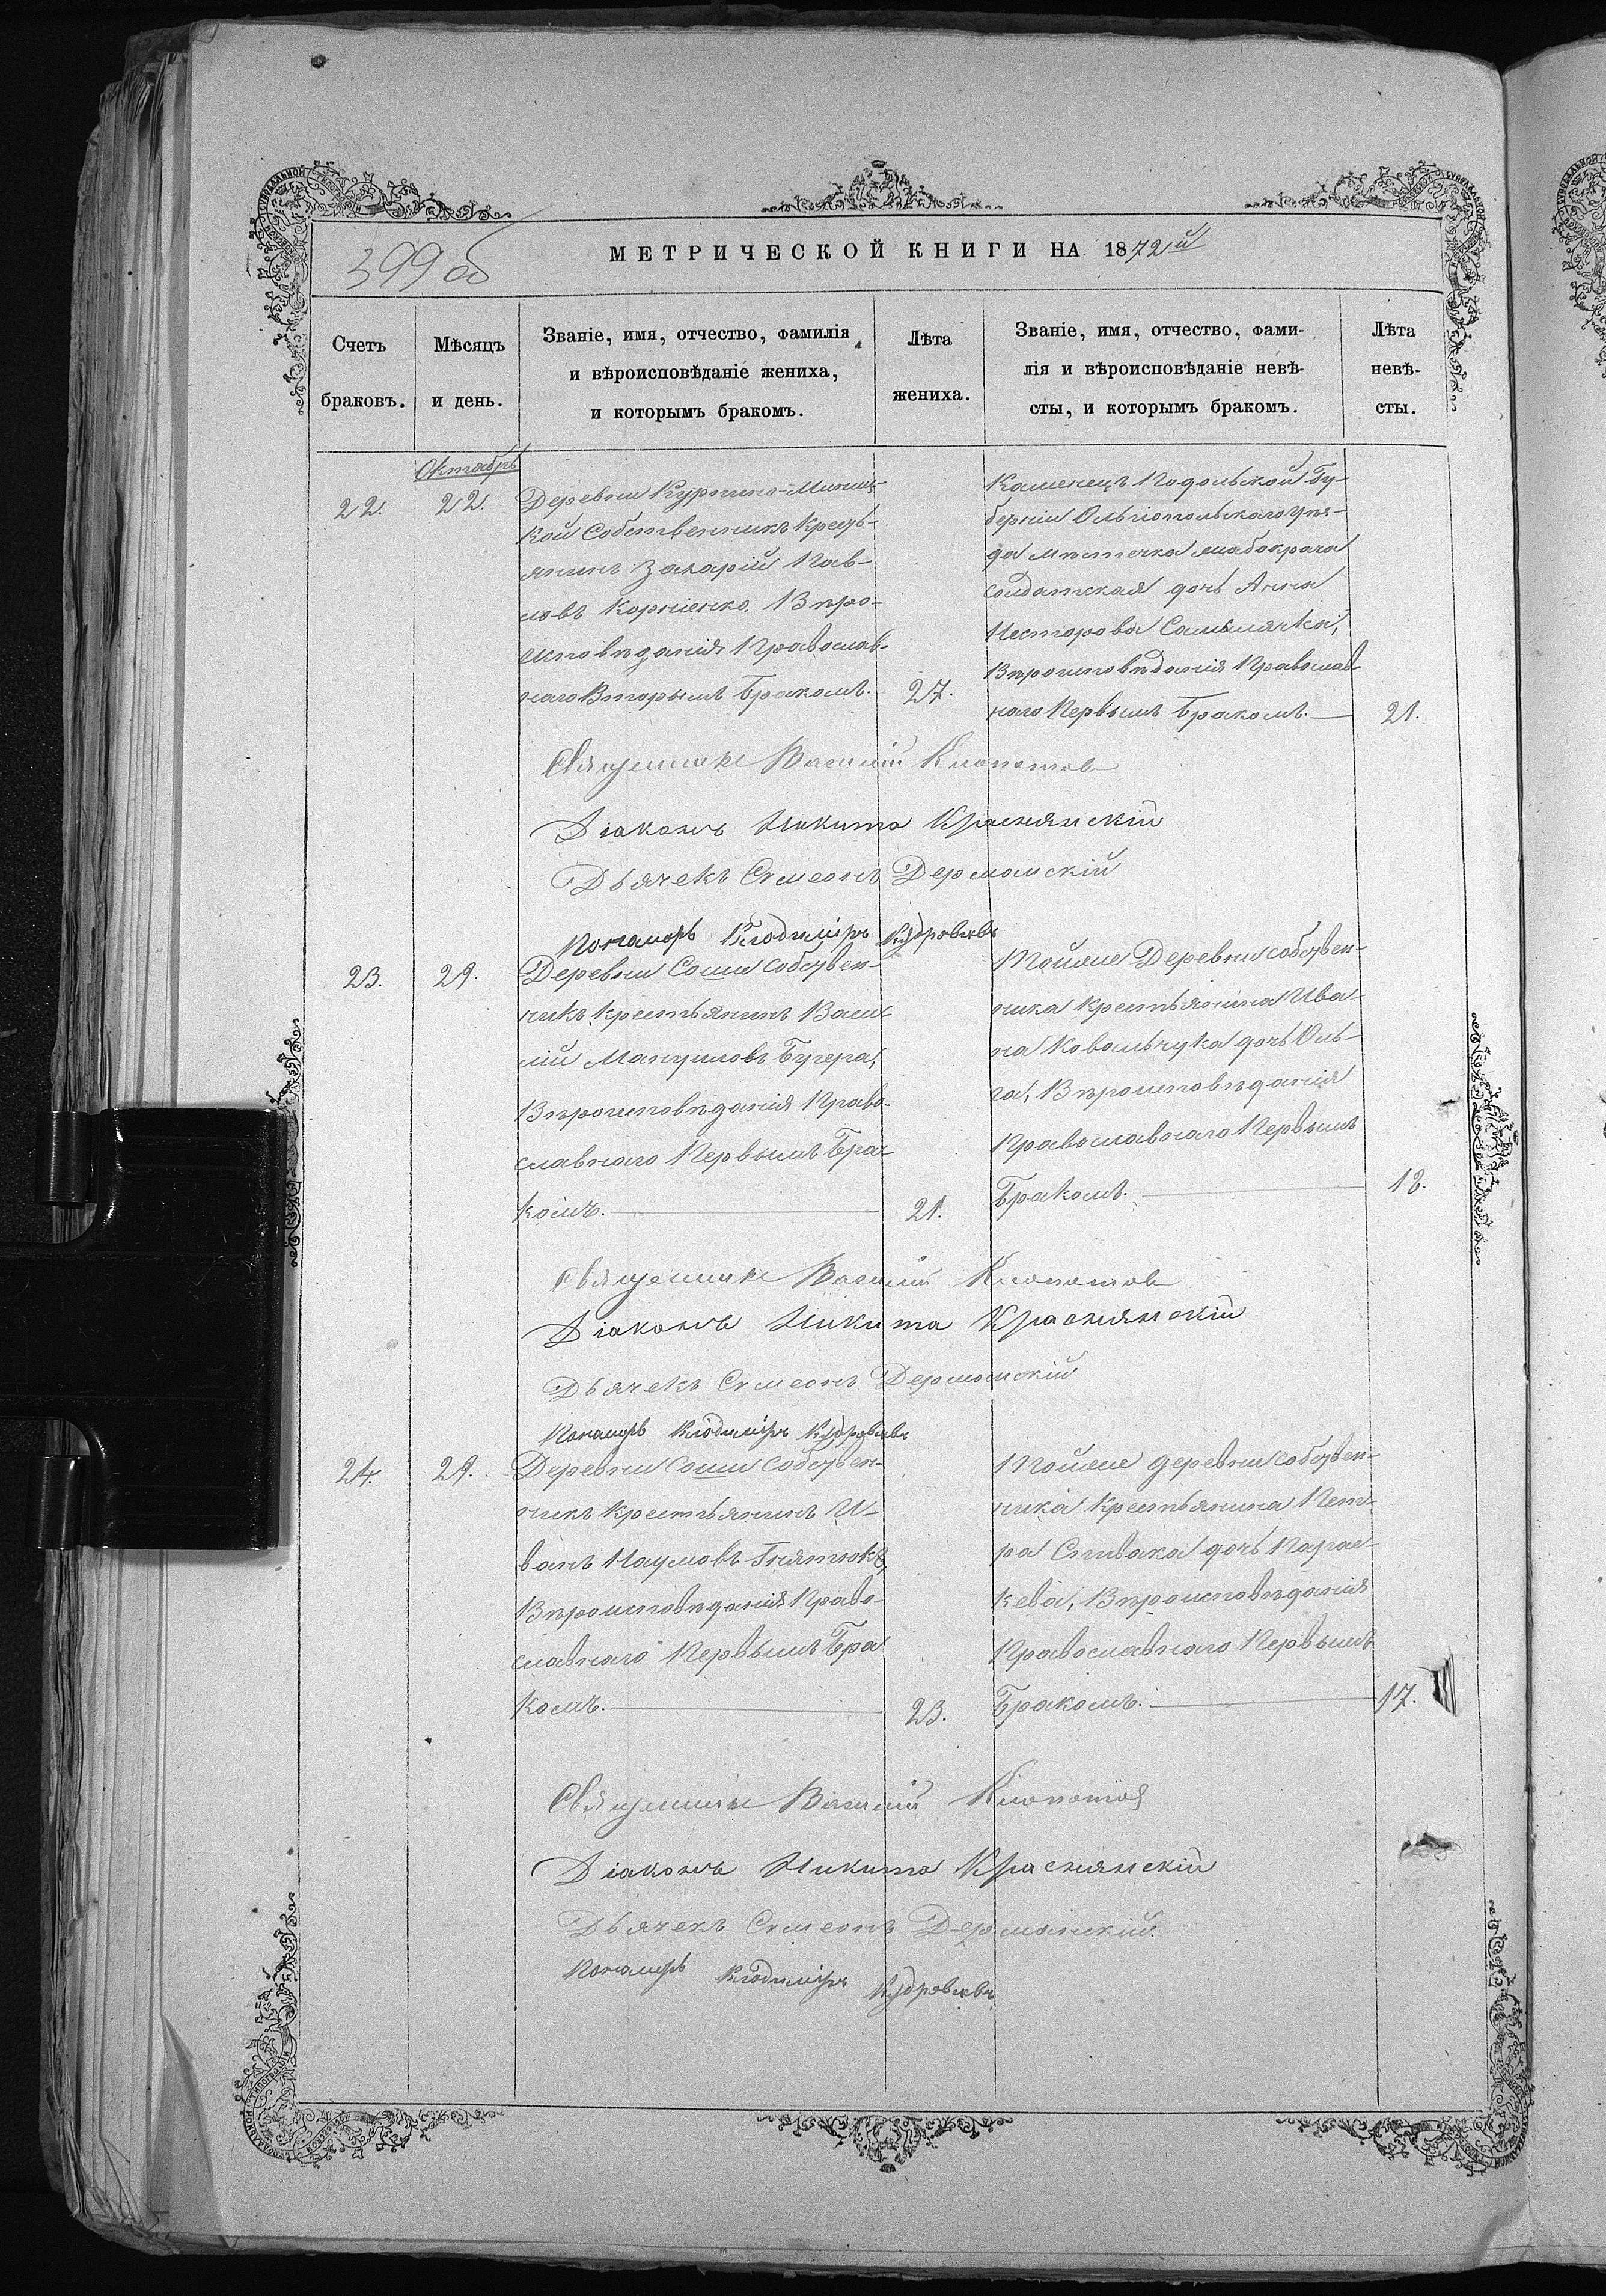 399 об
МЕТРИЧЕСКОЙ КНИГИ НА 1872й
Счетъ браковъ.
Мѣсяцъ и день.
Званіе, имя, отчество, фамилія
и вѣроисповѣданіе жениха,
и которымъ бракомъ.
Лѣта жениха.
Званіе, имя, отчество, фами-
лія и вѣроисповѣданіе невѣ-
сты, и которымъ бракомъ.
Лѣта невѣ-
сты.
Октябрь
22.
22.
Деревни
кой Собственникъ Кресть-
янинъ Захарій Пав-
ловъ Корніенко. Вѣро-
исповѣданія Православ-
наго Вторымъ Бракомъ.
27.
Каменецъ Подольской Гу-
берніи Ольгопольскаго Уѣз-
да мѣстечка
солдатская дочь Анна
Несторова
Вѣроисповѣданія Православ
наго Первымъ Бракомъ.
21.
Священникъ Василій Клопотов
Діаконъ Никита Краснянскій
Дьячекъ Симеонъ Дерманскій
Пономарь
23.
29.
Деревни Соши собствен-
никъ Крестьянинъ Васи
лій Мануиловъ Бугера,
Вѣроисповѣданія Право-
славнаго Первымъ Бра-
комъ.
21.
Тойже Деревни собствен-
ника Крестьянина Ива-
на Ковальчука дочь Оль-
га, Вѣроисповѣданія
Православнаго Первымъ
Бракомъ.
18.
Священникъ Василій Клопотов
Діаконъ Никита Краснянскій
Дьячекъ Симеонъ Дерманскій
Пономарь
24.
29.
Деревни Соши Собствен-
никъ Крестьянинъ И-
ванъ Наумовъ Гнатюкъ,
Вѣроисповѣданія Право-
славнаго Первымъ Бра
комъ.
23.
Тойже деревни собствен-
ника Крестьянина Пет-
ра Спивака дочь Парас-
кева, Вѣроисповѣданія
Православнаго Первымъ
Бракомъ.
17.
Священникъ Василій Клопотов
Діаконъ Никита Краснянскій
Дьячекъ Симеонъ Дерманскій.
Пономарь